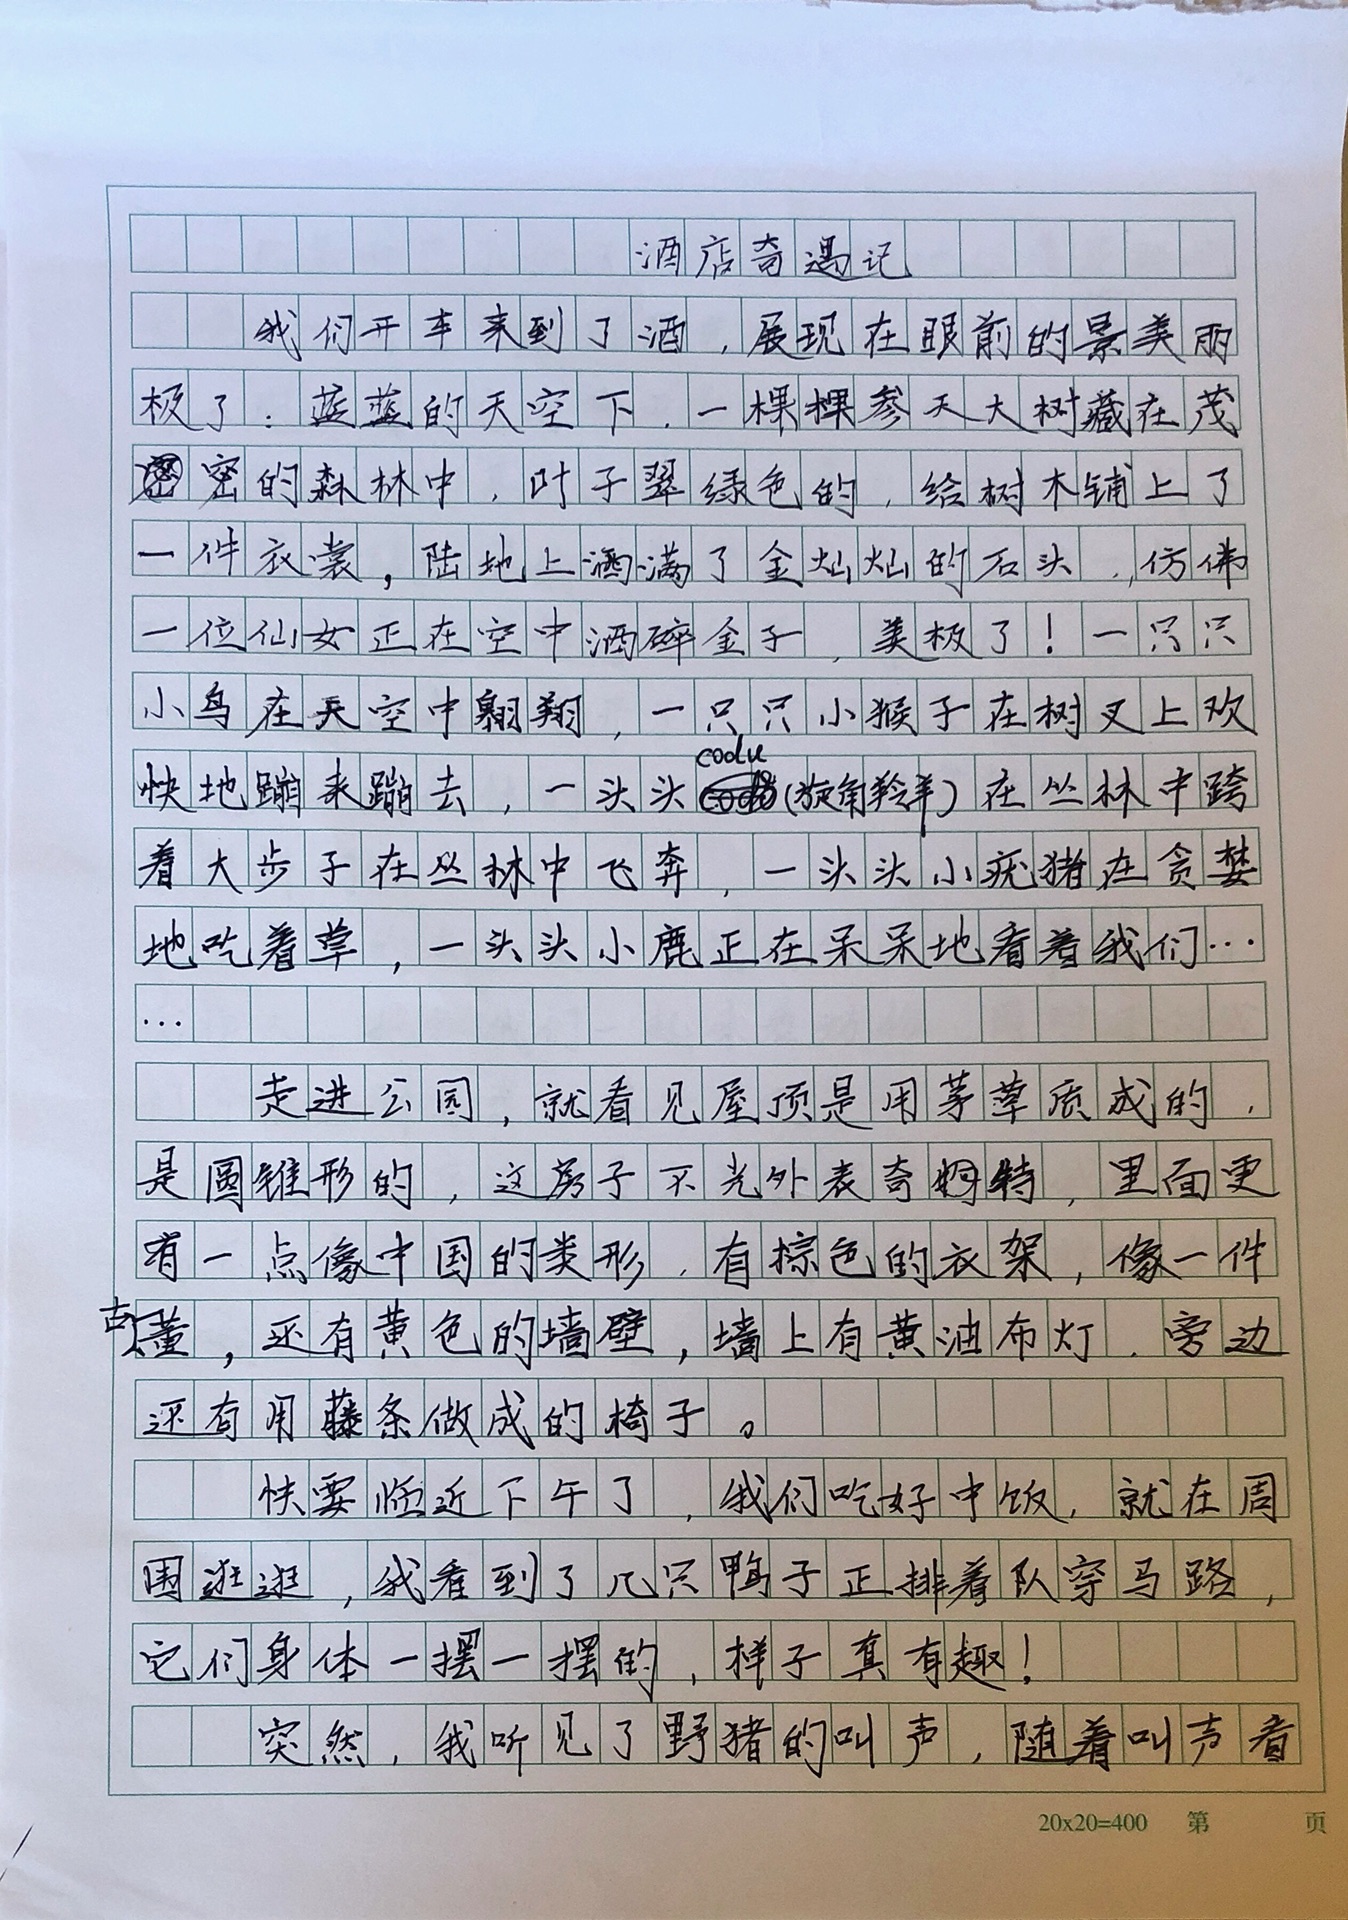 酒店奇遇记
我们开车来到了酒,展现在眼前的景美丽
极了:蓝蓝的天空下,一棵棵参天大树藏在茂
密的森林中,叶子翠绿色的,给树木铺上了
一件衣裳,陆地上洒满了金灿灿的石头,仿佛
一位仙女正在空中洒碎金子,美极了!一只只
小鸟在天空中翱翔,一只只小猴子在树叉上欢
codu
快地蹦来蹦去,一头头(旋角羚羊)在丛林中跨
着大步子在丛林中飞奔,一头头小疣猪在贪婪
地吃着草,一头头小鹿正在呆呆地看着我们…
…
走进公园,就看见屋顶是用茅草质成的,
是圆锥形的,这房子不光外表奇特,里面更
有一点像中国的类形,有棕色的衣架,像一件
古董,还有黄色的墙壁,墙上有黄油布灯,旁边
还有用藤条做成的椅子。
快要临近下午了,我们吃好中饭,就在周
围逛逛,我看到了几只鸭子正排着队穿马路,
它们身体一摆一摆的,样子真有趣!
突然,我听见了野猪的叫声,随着叫声看
20x20=400 第 页